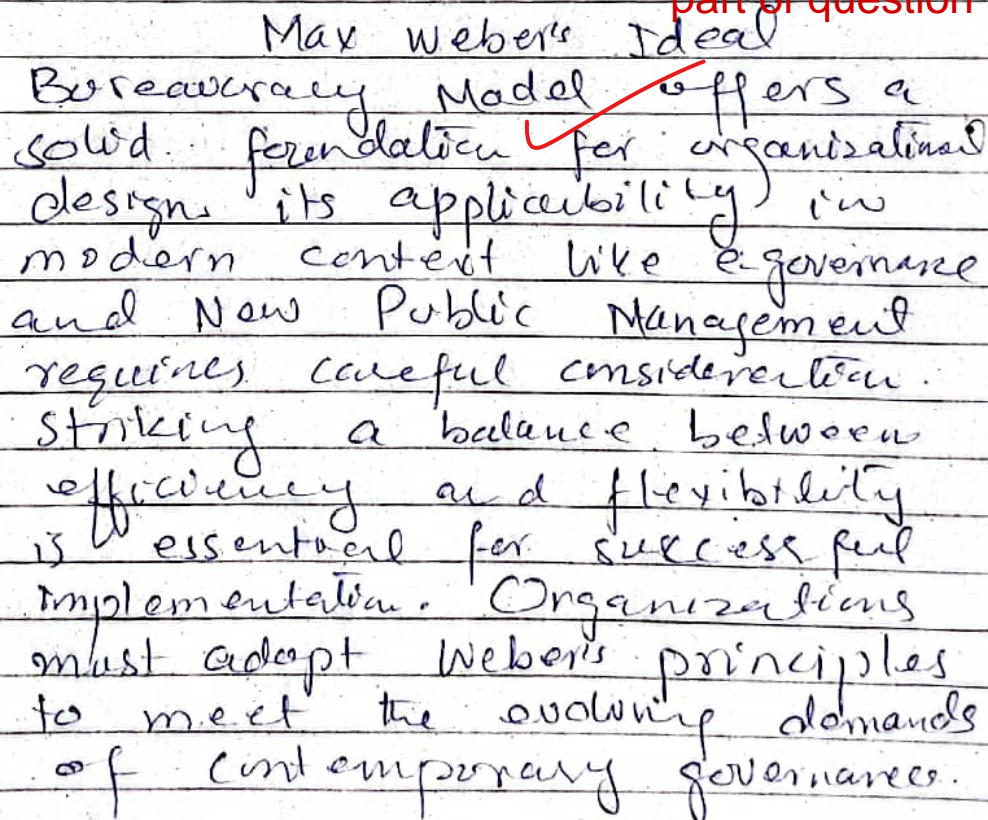 part of question
Max Weber's Ideal
Bureaucracy Model offers a
solid foundation for organizational
design, its applicability in
modern context like e-governance
and New Public Management
requires careful consideration.
Striking a balance between
efficiency and flexibility
is essential for successful
implementation. Organizations
must adapt Weber's principles
to meet the evolving demands
of contemporary governance.